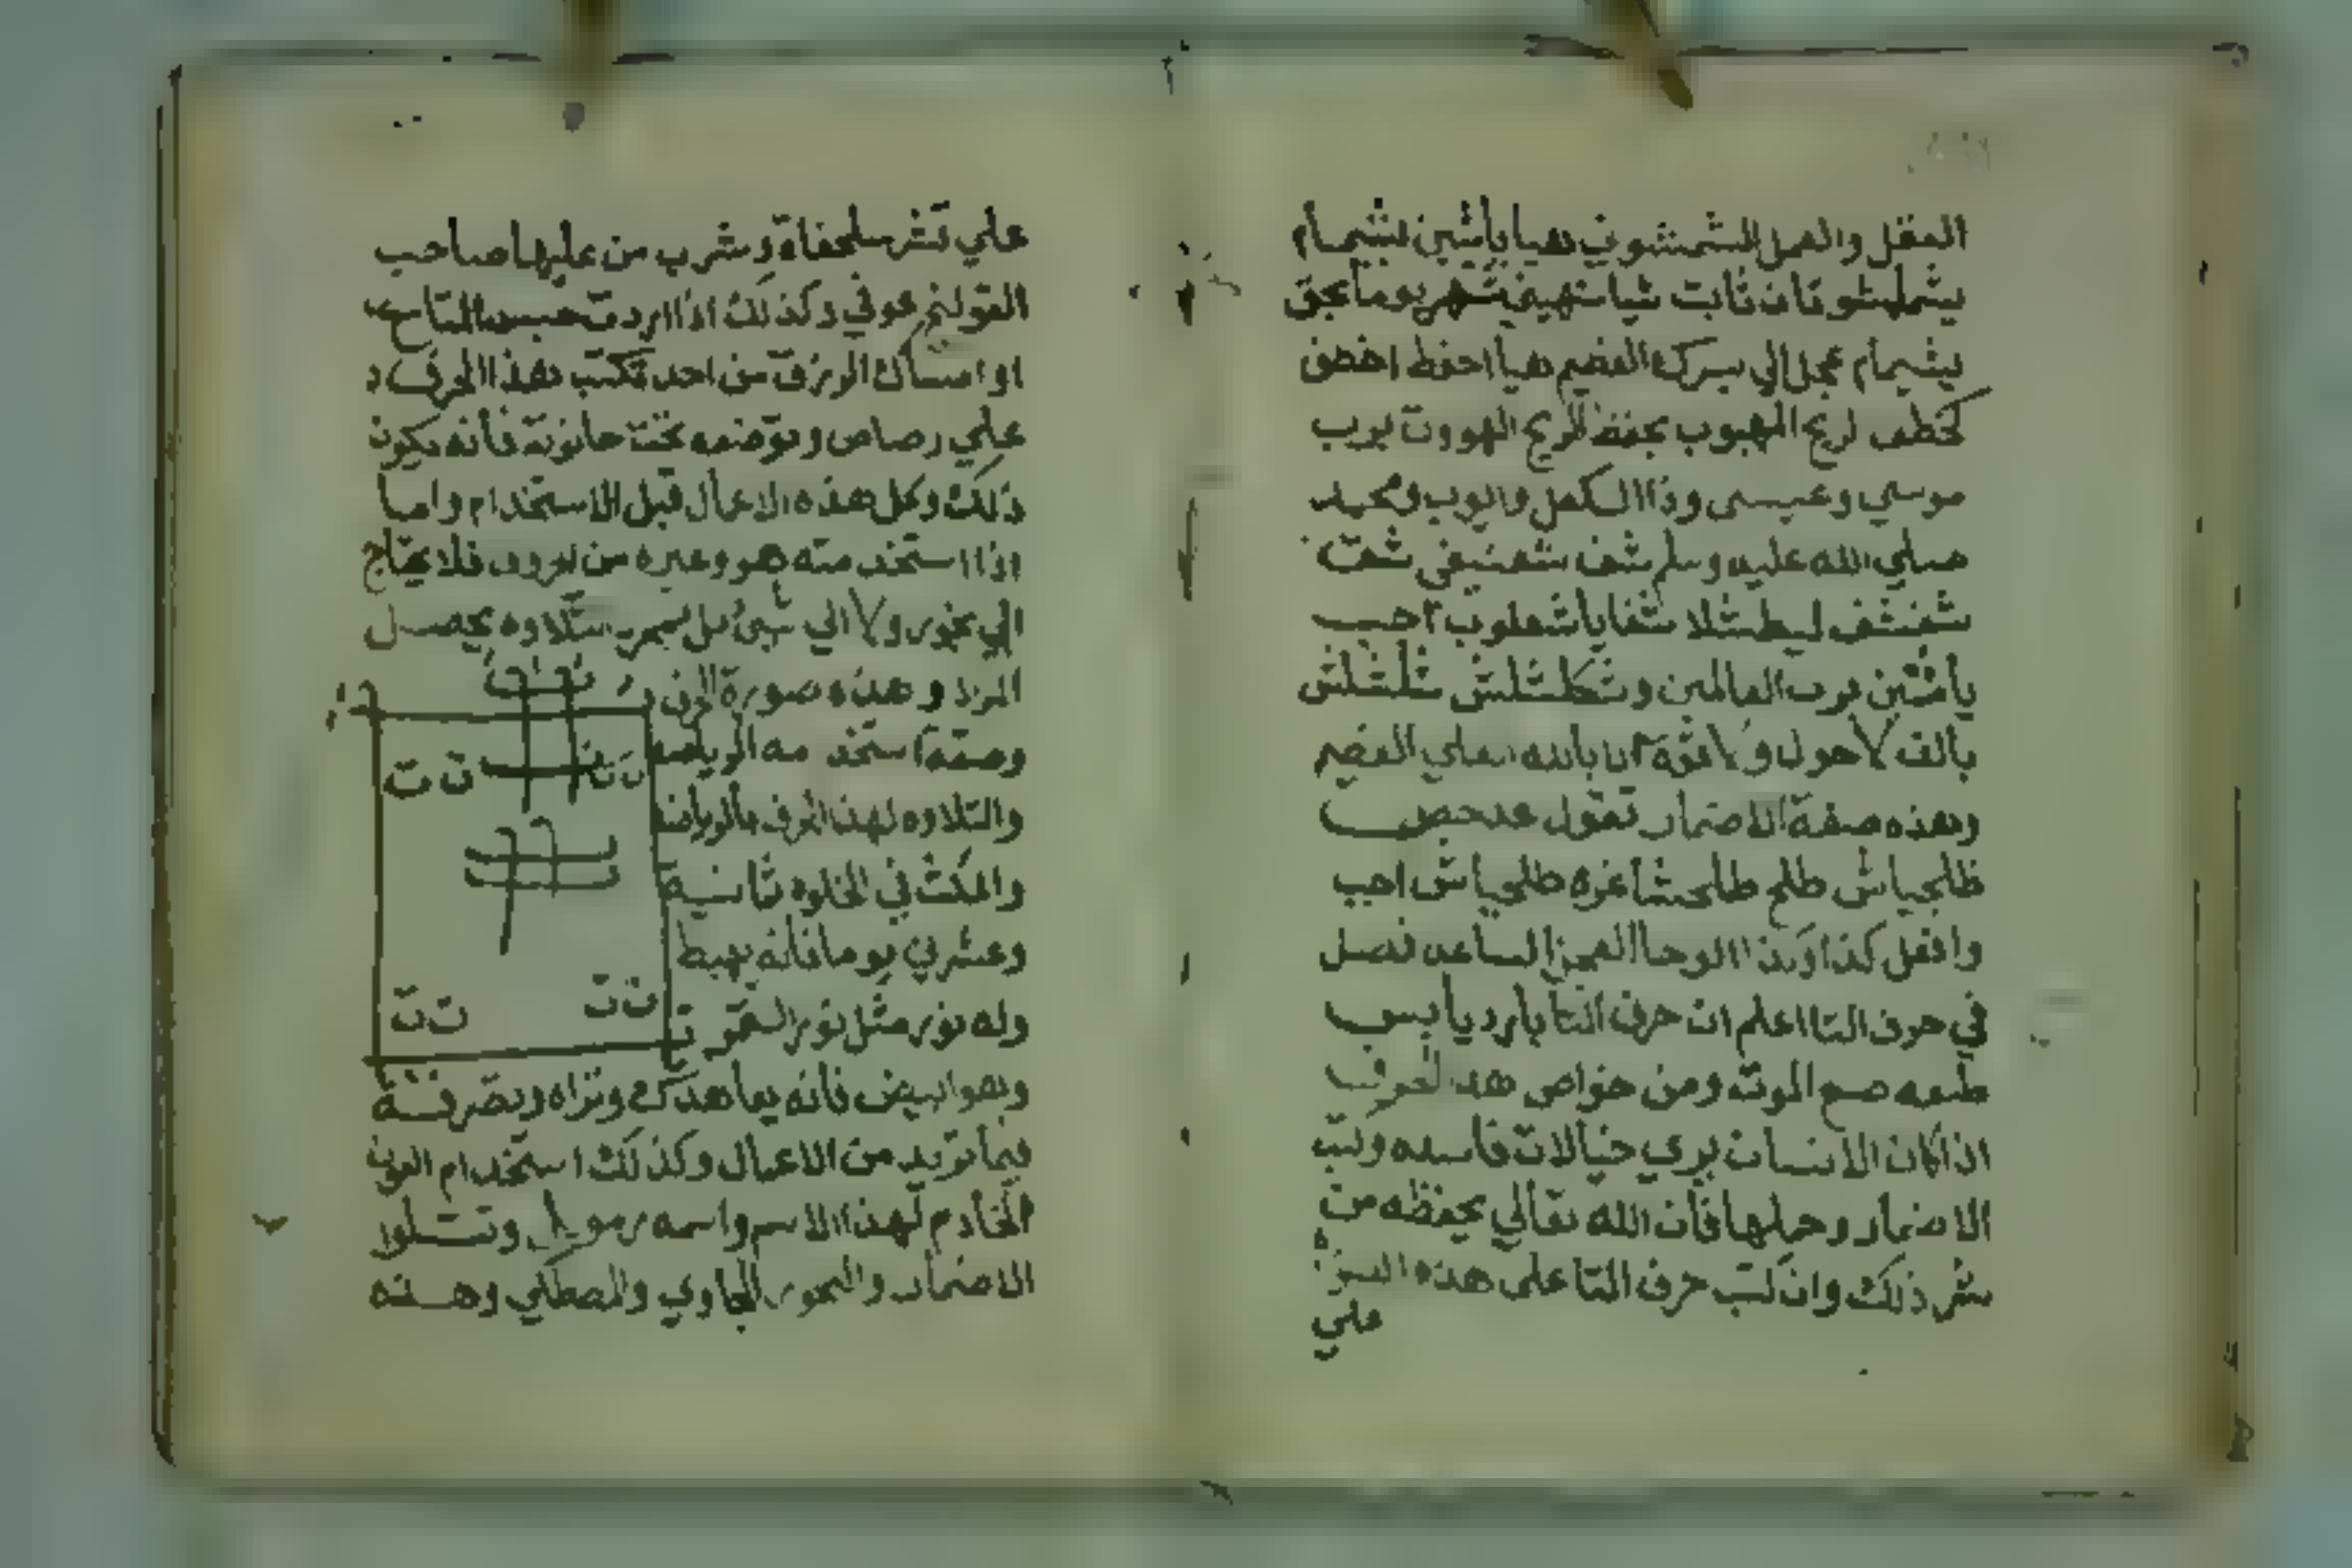 العقل والهمل الشمشوني هيا ياشين بشيمام
يثملشو تان ثابت شياتهيني شهر يوما بحق
يشيمام عجل الي سرك العضيم هيا احفظ اخطف
كخطف لريح الهبوب بحفظ الريح الهووت برب
موسي وعيسى وذا الكفل وايوب ومحمد
صلي الله عليه وسلم شف شفشفي شفت
شفشف ليطشلا شفا ياشهلوب اجب
ياشين برب العالمين وشكلشلش شلشلش
بالف لا حول ولا قوة الا بالله العلي العضيم
وهذه صفة الاضمار تقول
ظلجياش طلح طلحشاغزه طلحياش اجب
وافعل كذا وكذا الوحا العجل الساعه فصل
في حرف التا اعلم ان حرف التا بارد يابس
طبعه صبع الموت ومن خواص هذا الحرف
اذا كان الانسان يري خيالات فاسده وكتب
الاضمار وحملها فان الله تعالي يحفظه من
شر ذلك وان كتب حرف التا علي هذه
علي
علي قشر سلحفاة وشرب من عليها صاحب
القولنج عوفي وكذلك اذا اردت حبس التاسع
او امساك الرزق من احد تكتب هذا الحرف
علي رصاص وتوضعه تحت حانوته فانه يكون
ذلك وكل هذه الاعمال قبل الاستخدام واما
اذا استخدمته هو وغيره من الحروف فلا يحتاج
الي بخور ولا الي شيئ بل بمجرد التلاوه يحصل
المراد وهذه صورة الحرف
وصفة استخدامه الرياضه
والتلاوه لهذا الحرف بالرياضه
والمكث في الخلوه ثمانية
وعشرين يوما فانه يهبط
وله نور مثل نور القمر
وهو ابيض فانه يعاهدك وتراه وتصرفه
فيما تريد من الاعمال وكذلك استخدام العون
الخادم لهذا الاسم واسمه وتتلوا
الاضمار والبخور الجاوي والمصطكي وهذه